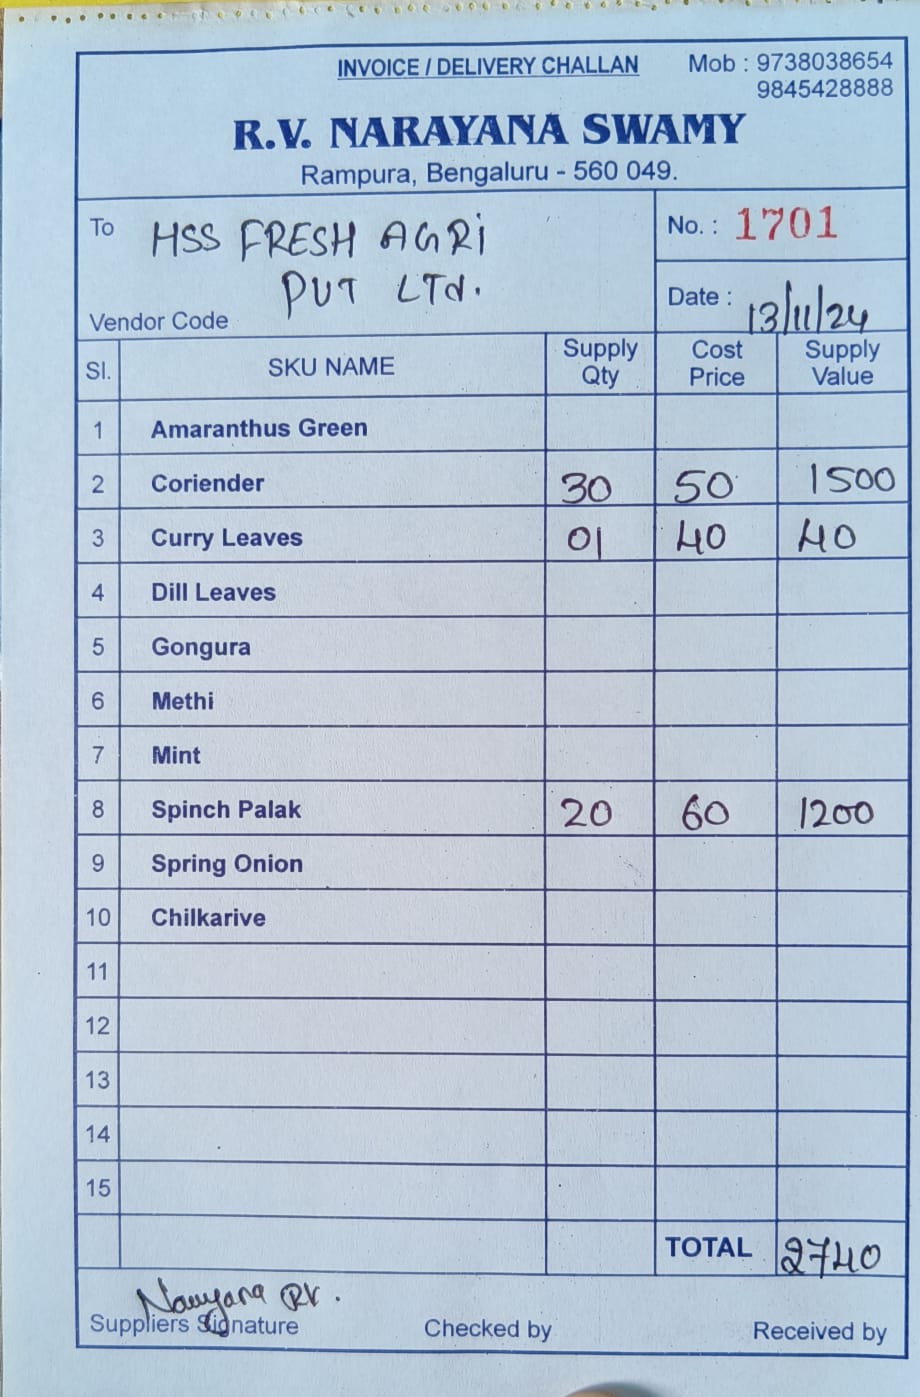 INVOICE / DELIVERY CHALLAN Mob : 9738038654
9845428888
R.V. NARAYANA SWAMY
Rampura, Bengaluru - 560 049.
To HSS FRESH AGRi
PVT LTd.
Vendor Code
No. : 1701
Date : 13/11/24
Sl. SKU NAME Supply Qty Cost Price Supply Value
1 Amaranthus Green
2 Coriender 30 50 1500
3 Curry Leaves 01 40 40
4 Dill Leaves
5 Gongura
6 Methi
7 Mint
8 Spinch Palak 20 60 1200
9 Spring Onion
10 Chilkarive
11
12
13
14
15
TOTAL 2740
Narayana RV.
Suppliers Signature Checked by Received by